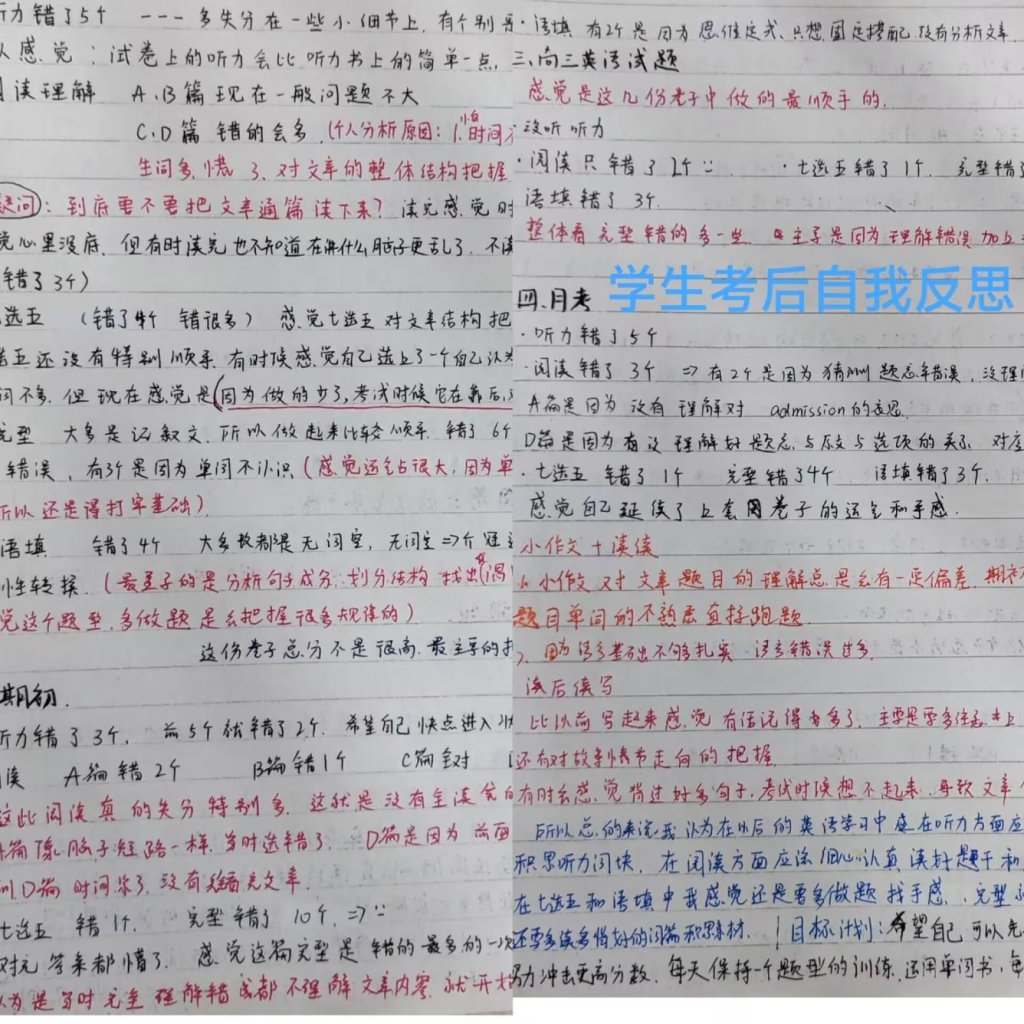 听力错了5个 --- 多失分在一些小细节上,有个别
感觉:试卷上的听力会比听力书上的简单一点,
阅读理解 A、B篇现在一般问题不大
C、D篇 错的会多,(个人分析原因:1.时间
生词多,慌 3、对文章的整体结构把握
疑问:到底要不要把文章通篇读下来?读完感觉时
觉心里没底,但有时读完也不知道在讲什么脑子更乱了,不
错了3个)
选五 (错了4个 错很多) 感觉七选五对文章结构把
选五还没有特别顺手,有时候感觉自己选上了一个自己认为
词不多,但现在感觉是(因为做的少了,考试时候它在靠后,
完型 大多是记叙文,所以做起来比较顺手,错了6个
错误,有3个是因为单词不认识(感觉运气占很大,因为单
所以还是得打牢基础)
语填 错了4个 大多数都是无词空,无词空=>个冠
性转换,(最主要的是分析句子成分,划分结构 找出
觉这个题型,多做题是会把握很多规律的)
这份卷子总分不是很高,最主要的
期初.
听力错了3个, 前5个就错了2个,希望自己快点进入状
阅读 A篇错2个 B篇错1个 C篇全对
这次阅读真的失分特别多,这就是没有全读
篇像脑子短路一样,当时选错了. D篇是因为前面
到D篇时间紧了,没有全看完文章.
七选五 错1个, 完型错了10个,=>
对完答案都懵了, 感觉这篇完型是错的最多的一次
认为是当时完全理解错或都不理解文章内容,就开
·语填 有2个是因为思维定式,只想固定搭配,没有分析文章.
三.高三英语试题
感觉是这几份卷子中做的最顺手的.
·没听听力
·阅读只错了2个 ·七选五错了1个, 完型错了
语填错了3个.
整体看完型错的多一些, 主要是因为理解错误加上
学生考后自我反思
四.月考
·听力错了5个
·阅读错了3个 =>有2个是因为猜测题总错误,没理
A篇是因为没有理解对 admission的意思.
D篇是因为有没理解好题意,与原文与选项的关系,对应
·七选五 错了1个 完型错了4个 语填错了3个.
感觉自己延续了上套卷子的运气和手感.
小作文+读续
1.小作文对文章题目的理解总是会有一定偏差,期初
题目单词的不熟悉直接跑题.
2、因为语言基础不够扎实 语言错误过多.
读后续写
比以前写起来感觉有话说得多了,主要是要多练
还有对故事情节走向的把握.
有时会感觉背过好多句子,考试时候想不起来,导致文章
所以总的来说我认为在以后的英语学习中应在听力方面应
积累听力词块,在阅读方面应该细心认真,读好题干和
在七选五和语填中我感觉还是要多做题找手感,完型
还要多读多背好的词篇积累素材. !目标计划:希望自己可以先
努力冲击更高分数,每天保持一个题型的训练,运用单词书,每